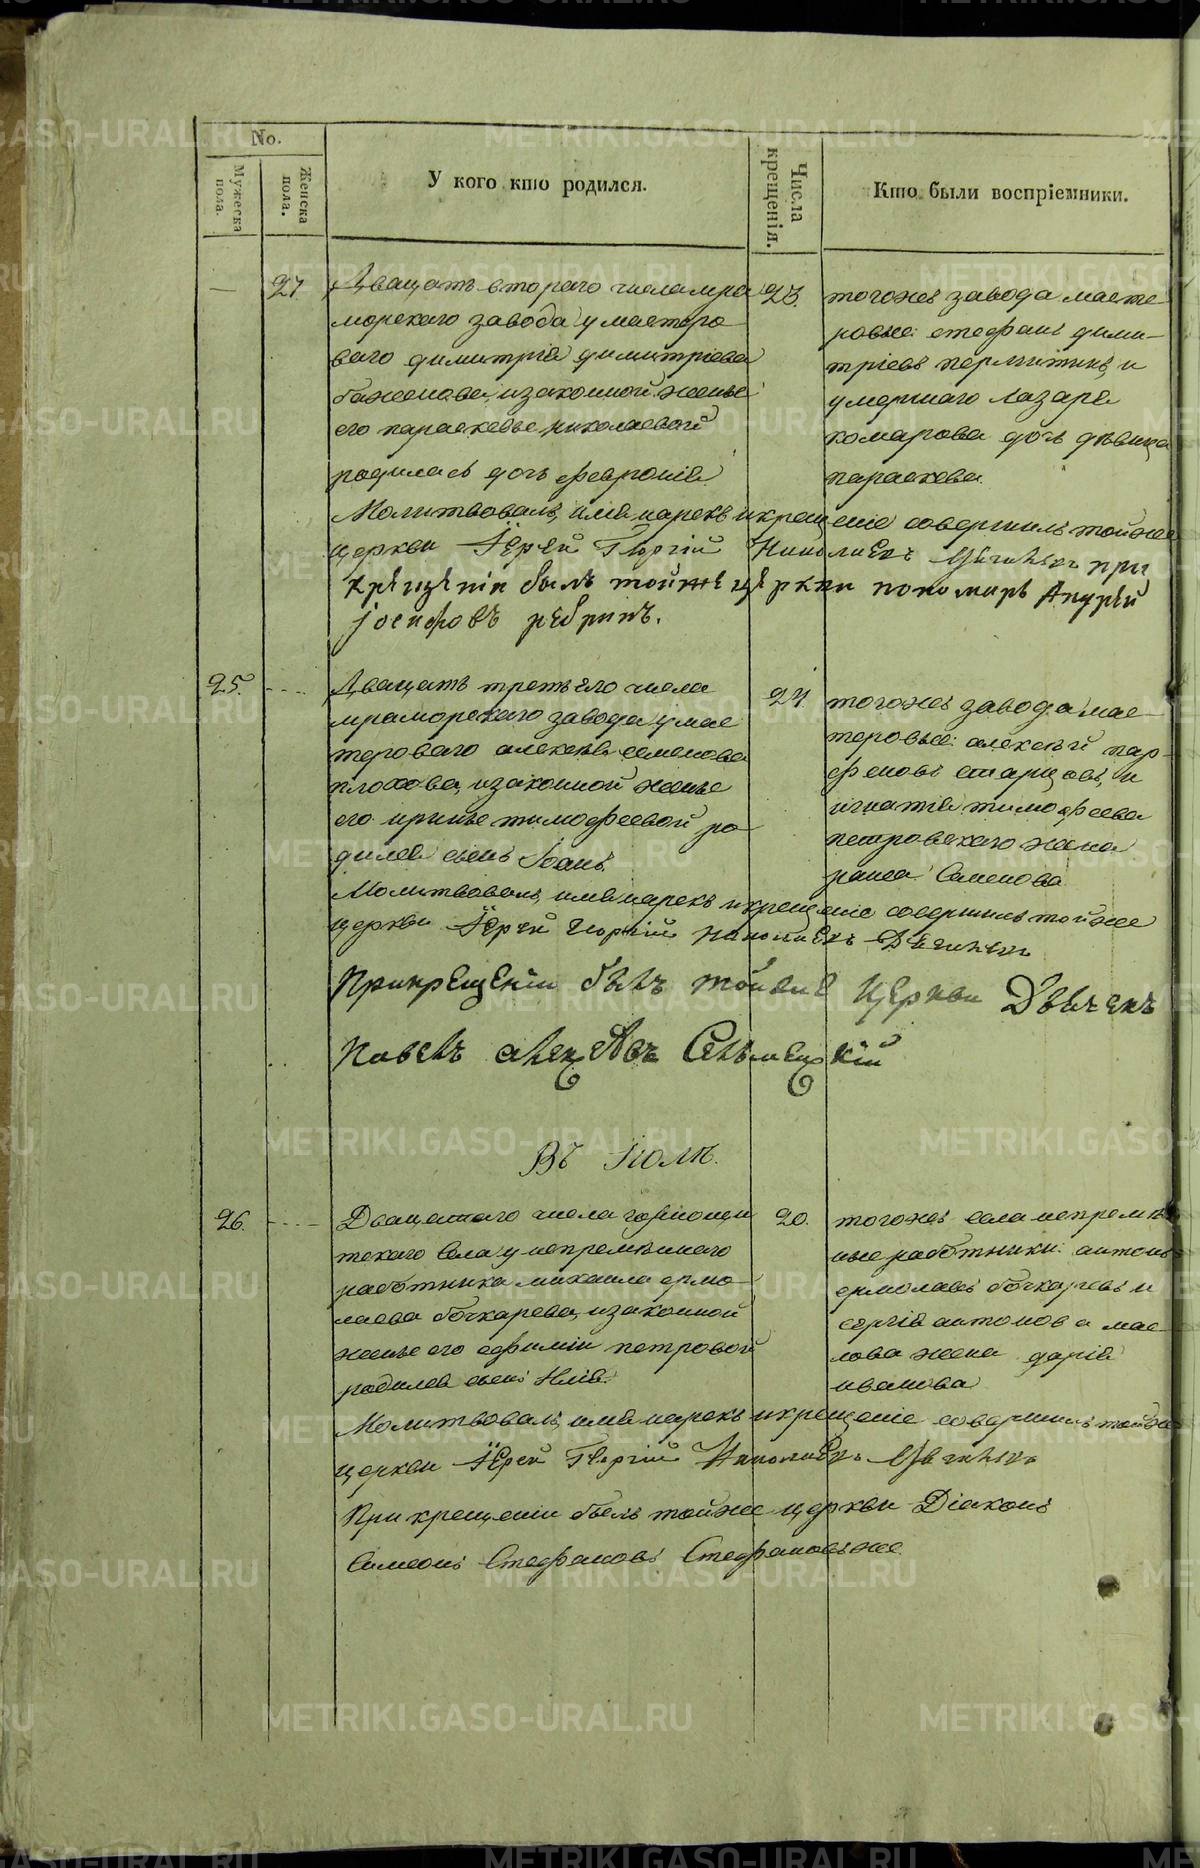 No.
Мужеска пола.
Женска пола.
У кого кто родился.
Числа крещенія.
Кто были воспріемники.
— 27
Двацать втораго числа мра
морскаго завода у мастеро
ваго димитрія димитріева
баженова, изаконной женъе
его параскевье николаевой
родилась дочь феврония
23.
тогоже завода масте
ровые: стефанъ дими-
тріевъ пермитинъ, и
умершаго лазаря
комарова дочь дѣвица
параскева.
Молитвовалъ, имя нарекъ и крещеніе совершилъ тойже
церкви Іерей Георгій Николаевъ при
крещеніи былъ тойже церкви пономарь Андрей
Іосифовъ ребринъ.
25.
Двацать третьяго числа
мраморскаго завода у мас
тероваго алексѣя семенова
плохова, изаконной женъе
его иринъе тимофеевой ро-
дился сынъ Іоанъ
24.
тогоже завода мас-
теровые: алексѣй пар-
феновъ старцовъ, и
игнатія тимофеева
петровскаго жена
раиса Семенова
Молитвовалъ, имя нарекъ и крещеніе совершилъ тойже
церкви Іерей Георгій Николаевъ
При крещеніи былъ тойже Церкви Дьячекъ
Павелъ алексѣевъ
Въ Іюлѣ.
26.
Двацатаго числа горнощи
тскаго села у непремѣннаго
работника михаила ермо-
лаева бочкарева, изаконной
женъе его ефиміи петровой
родился сынъ Илія.
20.
тогоже села непремѣн
ные работники: антонъ
ермолаевъ бочкаревъ и
сергія антонова мас-
лова жена дарія
иванова
Молитвовалъ, имя нарекъ и крещеніе совершилъ тойже
церкви Іерей Георгій Николаевъ
При крещеніи былъ тойже церкви Діаконъ
Симеонъ Стефановъ Стефановъ же